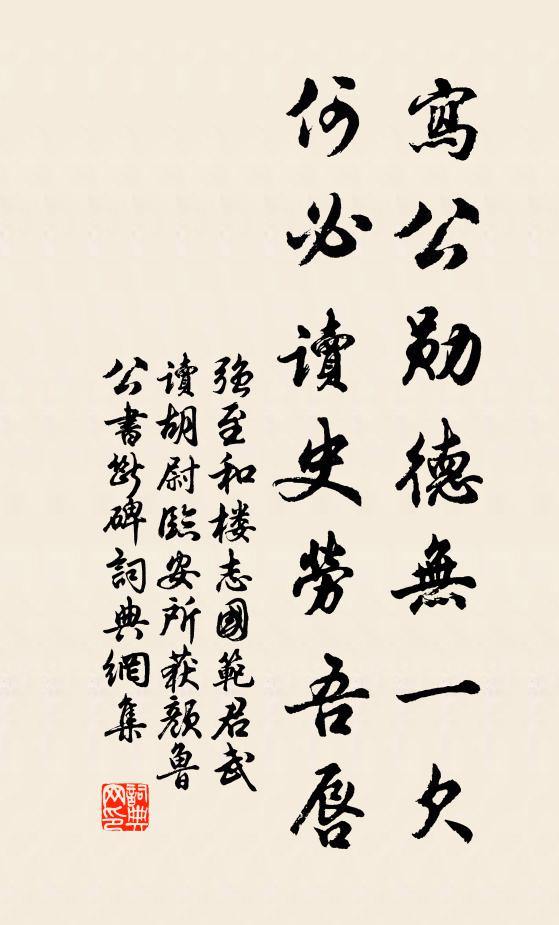 寫公勋德無一欠
何必讀史勞吾唇
强至和楼志國範君武
讀胡尉臨安所获顏魯
公書斷碑詞典網集
詞典网印